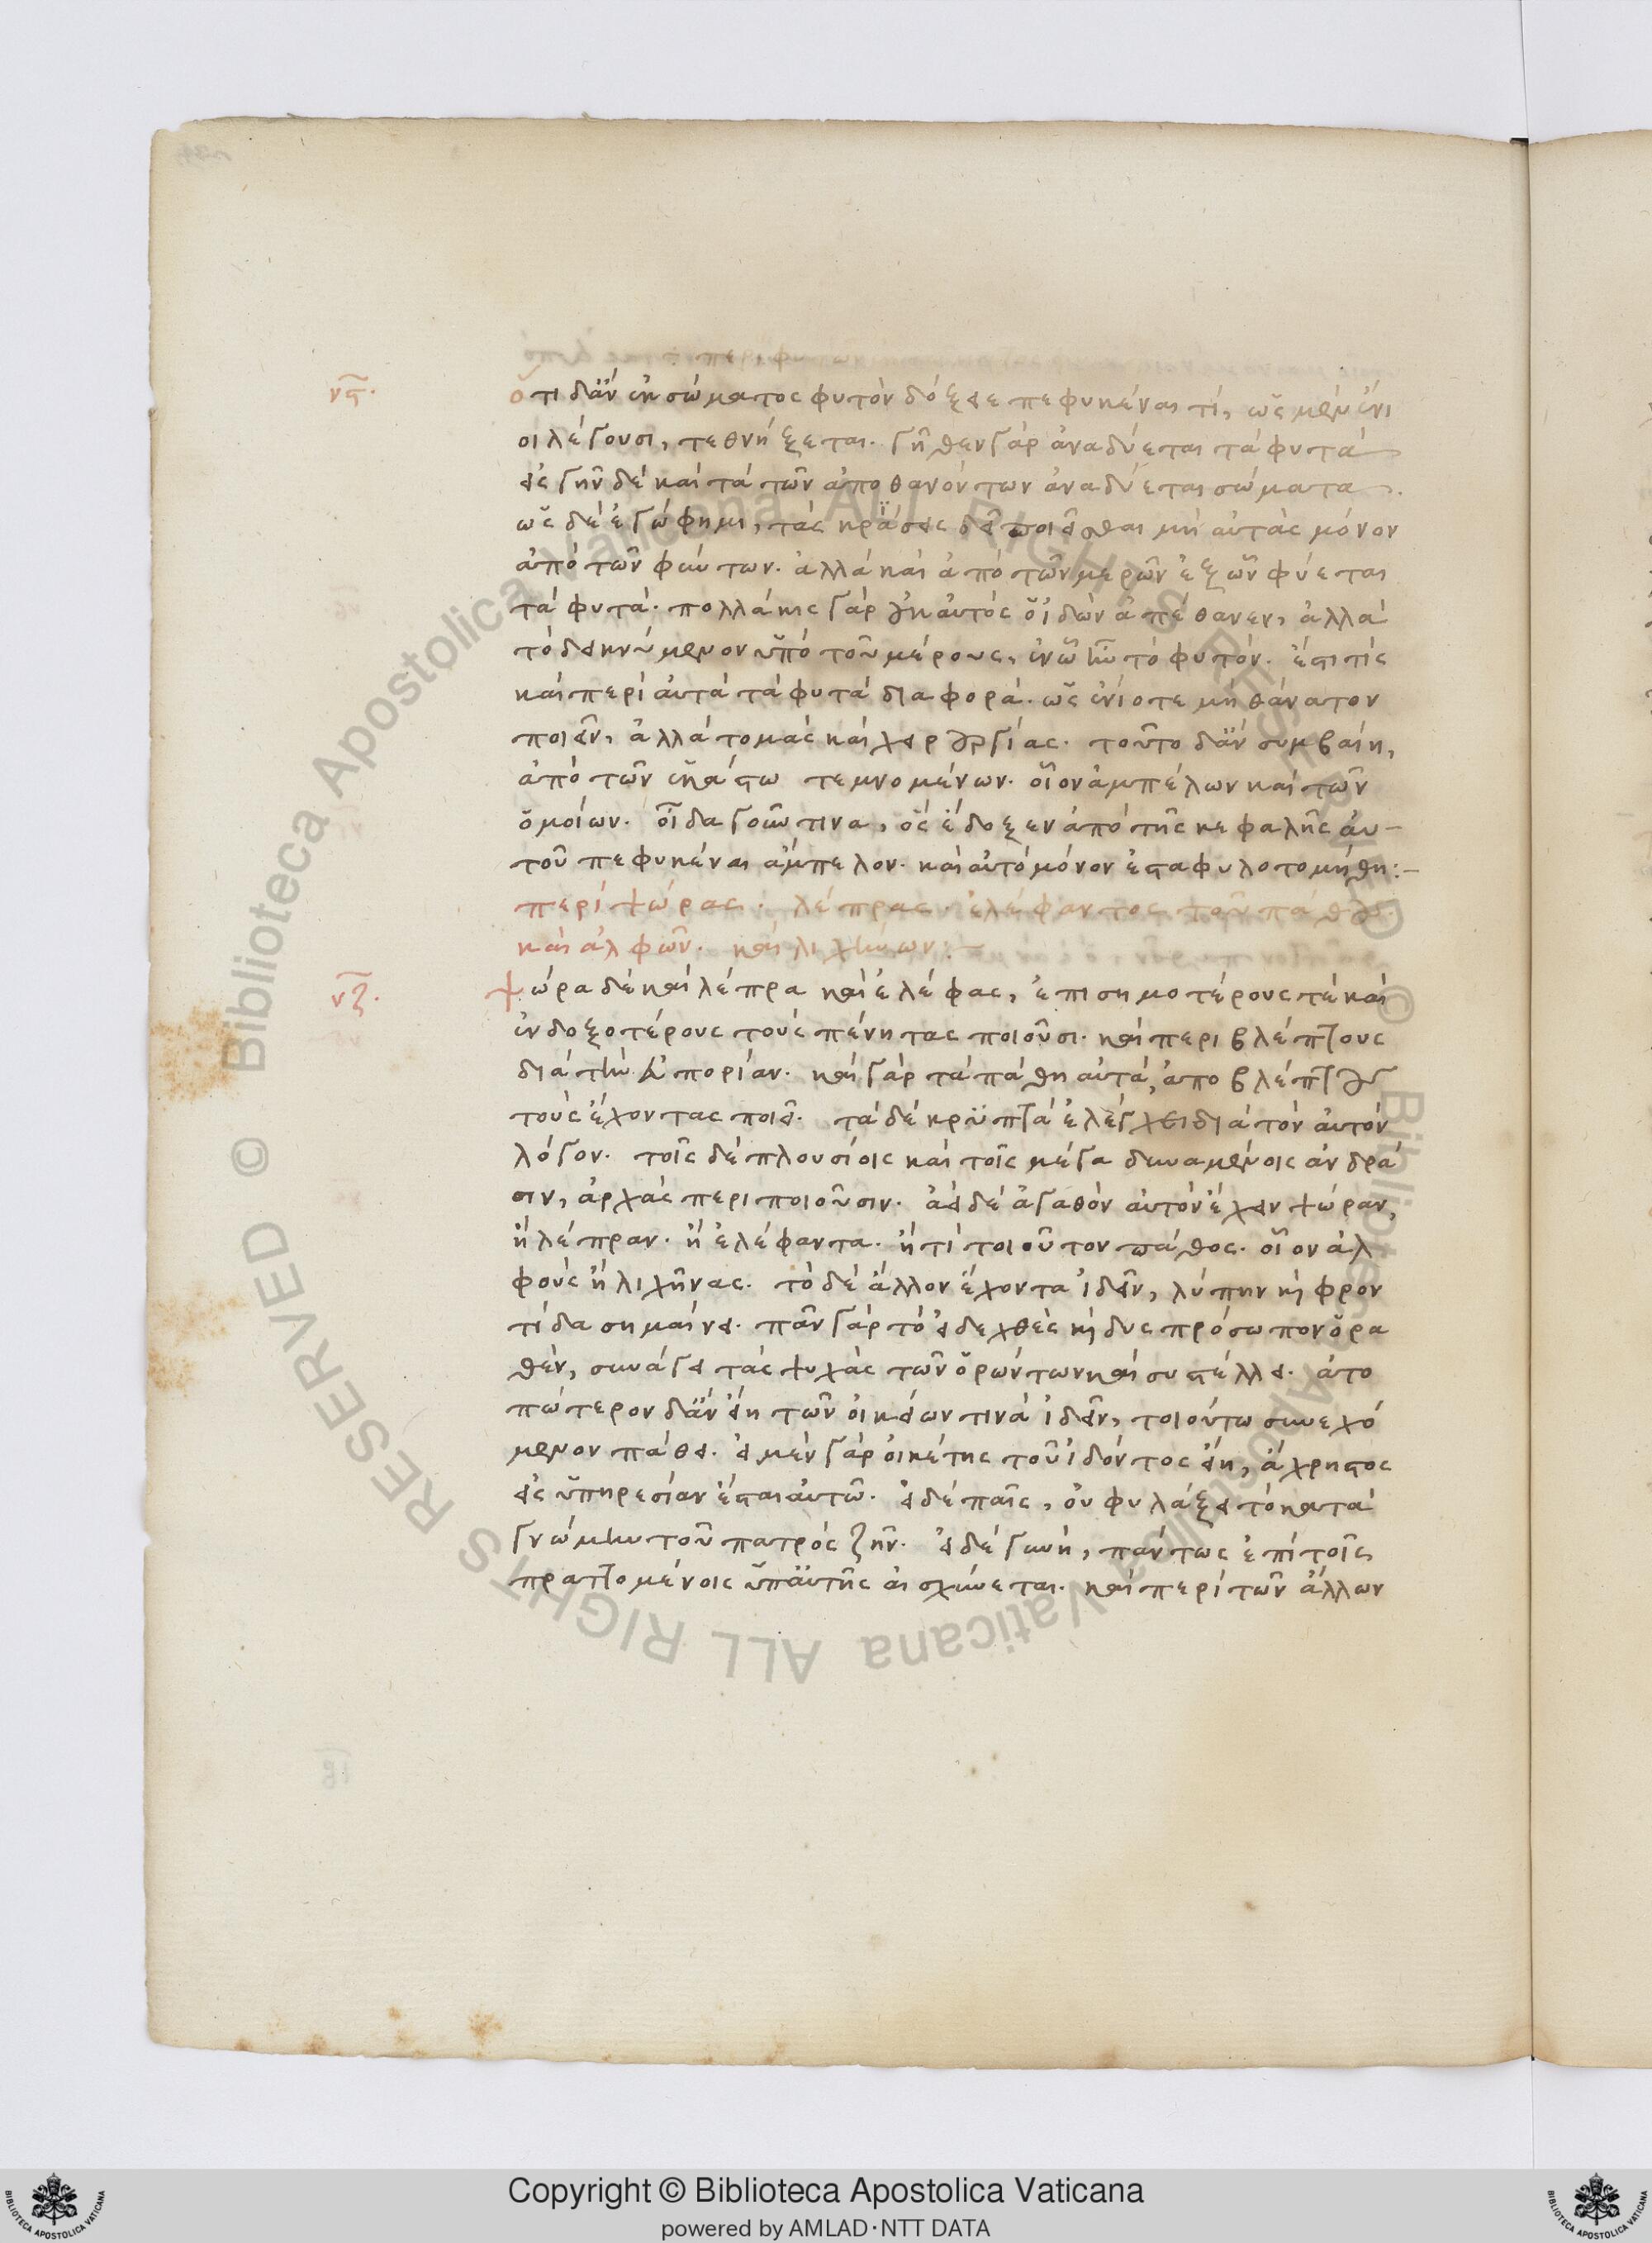 νϛ.
ὅτι δ' ἂν ἐκ σώματος φυτὸν δόξειε πεφυκέναι τί, ὡς μὲν ἔνι
οι λέγουσι, τεθνήξεται. γῆθεν γὰρ ἀναδύεται τὰ φυτὰ
εἰς γῆν δὲ καὶ τὰ τῶν ἀποθανόντων ἀναδύεται σώματα.
ὡς δὲ ἐγώ φημι, τὰς κράσεις δεῖ ποιεῖσθαι μὴ αὐτὰς μόνον
ἀπὸ τῶν φύντων. ἀλλὰ καὶ ἀπὸ τῶν μερῶν ἐξ ὧν φύεται
τὰ φυτά. πολλάκις γὰρ οὐκ αὐτὸς ὁ ἰδὼν ἀπέθανεν, ἀλλὰ
τὸ δεικνύμενον ὑπὸ τοῦ μέρους, ἐν ᾧ ἦν τὸ φυτόν. ἔστι τίς
καὶ περὶ αὐτὰ τὰ φυτὰ διαφορά. ὡς ἐνίοτε μὴ θάνατον
ποιεῖν, ἀλλὰ τομὰς καὶ χειρουργίας. τοῦτο δ' ἂν συμβαίη,
ἀπὸ τῶν τεμνομένων. οἷον ἀμπέλων καὶ τῶν
ὁμοίων. οἶδα γοῦν τινα, ὃς ἔδοξεν ἀπὸ τῆς κεφαλῆς αὐ-
τοῦ πεφυκέναι ἄμπελον. καὶ αὐτὸ μόνον ἐσταφυλοτομήθη:-
περὶ ψώρας. λέπρας. ἐλέφαντος τοῦ πάθους.
καὶ ἀλφῶν. καὶ λιχήνων:-
νζ.
ψώρα δὲ καὶ λέπρα καὶ ἐλέφας, ἐπισημοτέρους τὲ καὶ
ἐνδοξοτέρους τοὺς πένητας ποιοῦσι. καὶ περιβλέπτους
διὰ τὴν εὐπορίαν. καὶ γὰρ τὰ πάθη αὐτά, ἀποβλέπτους
τοὺς ἔχοντας ποιεῖ. τὰ δὲ κρυπτὰ ἐλέγχει διὰ τὸν αὐτὸν
λόγον. τοῖς δὲ πλουσίοις καὶ τοῖς μέγα δυναμένοις ἀνδρά
σιν, ἀρχὰς περιποιοῦσιν. ἀεὶ δὲ ἀγαθὸν αὐτὸν ἔχειν ψώραν,
ἢ λέπραν. ἢ ἐλέφαντα. ἤ τι τοιοῦτον πάθος. οἷον ἀλ
φοὺς ἢ λιχῆνας. τὸ δὲ ἄλλον ἔχοντα ἰδεῖν, λύπην καὶ φρον
τίδα σημαίνει. πᾶν γὰρ τὸ εἰδεχθὲς καὶ δυσπρόσωπον ὁρα
θὲν, συνάγει τὰς ψυχὰς τῶν ὁρώντων καὶ συστέλλει. ἀτο
πώτερον δ' ἂν εἴη τῶν οἰκείων τινὰ ἰδεῖν, τοιούτω συνεχό
μενον πάθει. εἰ μὲν γὰρ οἰκέτης τοῦ ἰδόντος εἴη, ἄχρηστος
εἰς ὑπηρεσίαν ἔσται αὐτῶ. εἰ δὲ παῖς, οὐ φυλάξει τὸ κατὰ
γνώμην τοῦ πατρὸς ζῆν. εἰ δὲ γυνὴ, πάντως ἐπὶ τοῖς
πραττομένοις ὑπ' αὐτῆς αἰσχύνεται. καὶ περὶ τῶν ἄλλων
© Biblioteca Apostolica Vaticana ALL RIGHTS RESERVED
Copyright © Biblioteca Apostolica Vaticana
powered by AMLAD·NTT DATA